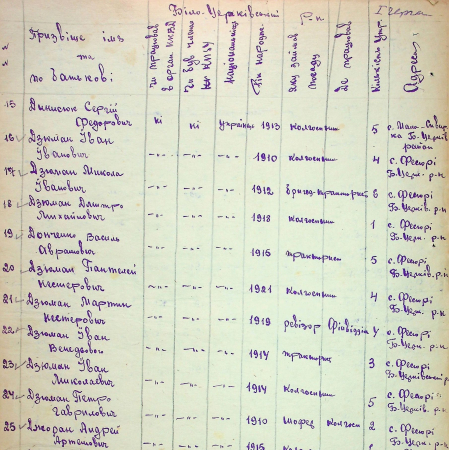 Біло-Церківський Р-н
Прізвіще імя та по батькові:
чи працював в орган. НКВД
чи був член.
Національність
Рік народж.
яку займав посаду
де працював
Адреса:
15 Денисюк Сергій Федорович ні ні українець 1913 колгоспник 5 с. Мало-Сквирка Б-Церків район
16 Дзюман Іван Іванович -"- -"- -"- 1910 Колгоспник 4 с. Фесюрі Б-Церк. р-н
17 Дзюман Микола Іванович -"- -"- -"- 1912 Бригад-тракторист 6 с. Фесюрі Б-Церків. р-н
18 Дзюман Дмитро Михайлович -"- -"- -"- 1918 Колгоспник 1 с. Фесюрі Б-Церк. р-н
19 Донченко Василь Аврамович -"- -"- -"- 1915 тракторист 5 с. Фесюрі Б-Церків. р-н
20 Дзюман Пантелей Нестерович -"- -"- -"- 1921 Колгоспник 4 с. Фесюрі Б-Церк. р-н
21 Дзюман Мартин Нестерович -"- -"- -"- 1919 ревізор 4 с. Фесюрі Б-Церк. р-н
22 Дзюман Іван -"- -"- -"- 1917 тракторист 3 с. Фесюрі Б-Церківський р-н
23 Дзюман Іван Миколаєвич -"- -"- -"- 1914 Колгоспник 5 с. Фесюрі Б-Церків. р-н
24 Дзюман Петро Гаврилович -"- -"- -"- 1910 шофер Колгосп 2 с. Фесюрі Б-Церк. р-н
25 Андрей Артемович -"- -"- -"- 1915